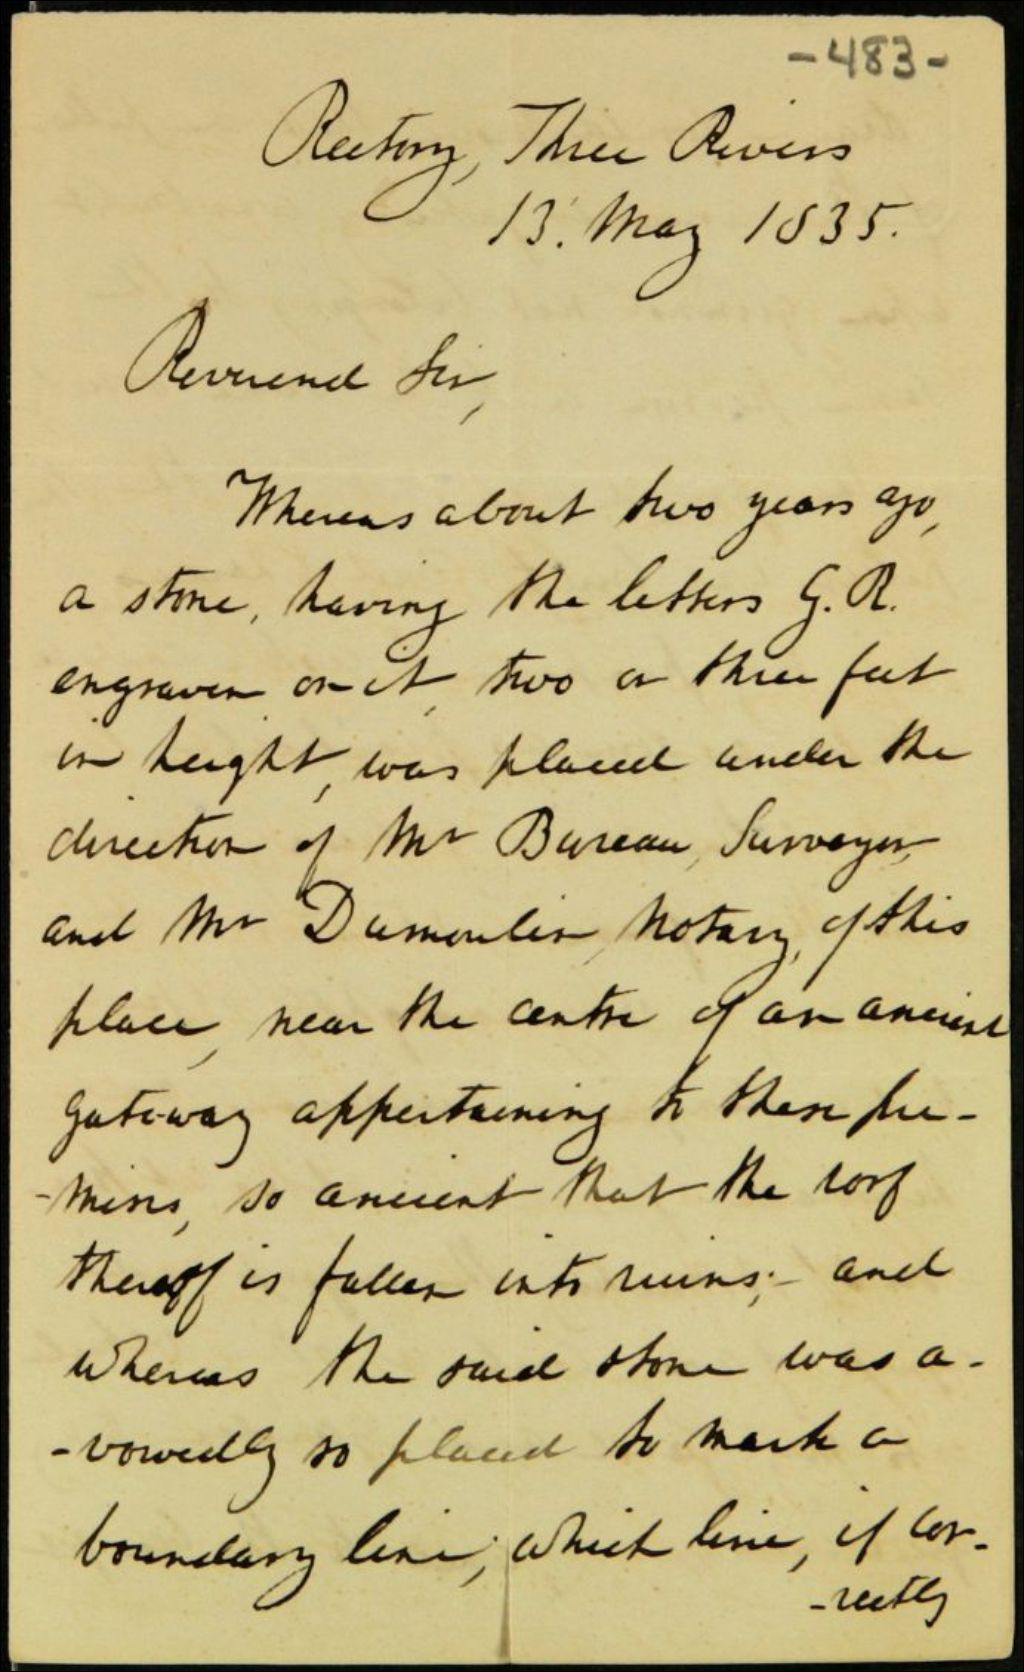 -483-
Rectory, Three Rivers
13. May 1835.
Reverend Sir,
Whereas about two years ago,
a stone, having the letters G. R.
engraven on it, two or three feet
in height, was placed under the
direction of Mr Bureau, Surveyor,
and Mr Dumoulin, Notary, of this
place, near the centre of an ancient
gate-way appertaining to these pre-
-mises, so ancient that the roof
thereof is fallen into ruins;- and
whereas the said stone was a-
-vowedly so placed to mark a
boundary line; which line, if cor-
-rectly